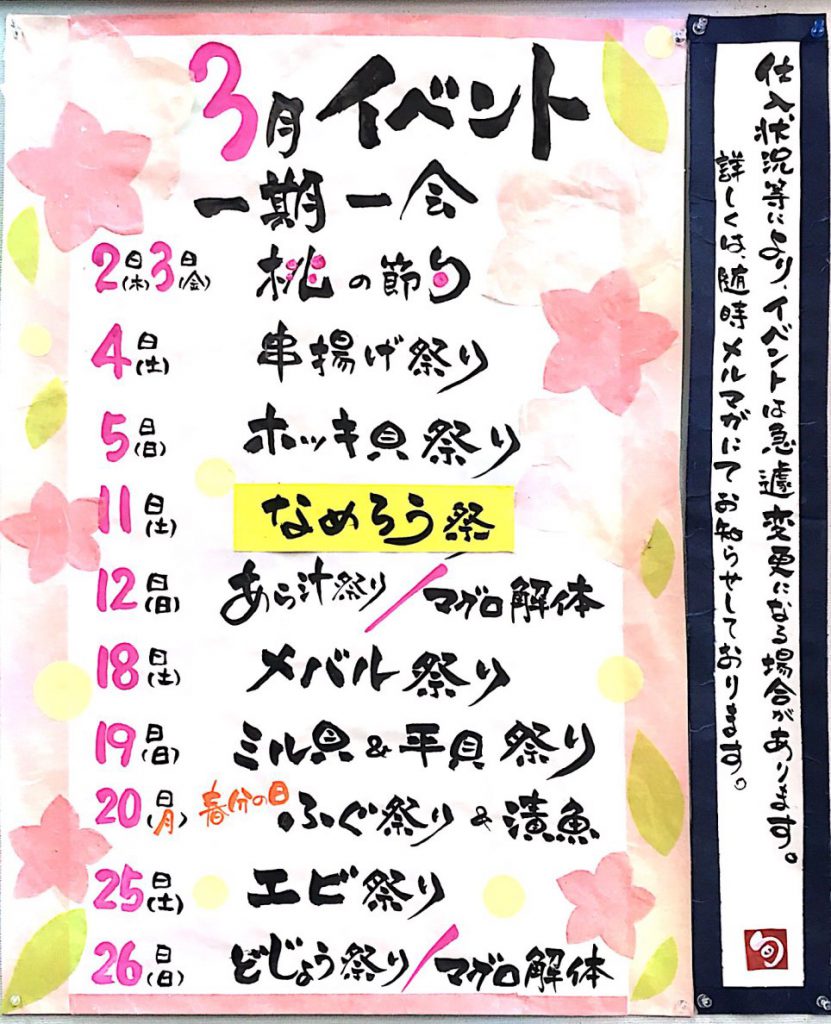 3月イベント
一期一会
2日(木)3日(金) 桃の節句
4日(土) 串揚げ祭り
5日(日) ホッキ貝祭り
11日(土) なめろう祭
12日(日) あら汁祭り/マグロ解体
18日(土) メバル祭り
19日(日) ミル貝&平貝祭り
20日(月) 春分の日 ふぐ祭り&漬魚
25日(土) エビ祭り
26日(日) どじょう祭り/マグロ解体
仕入状況等により、イベントは急遽変更になる場合があります。
詳しくは、随時メルマガにてお知らせしております。
旬